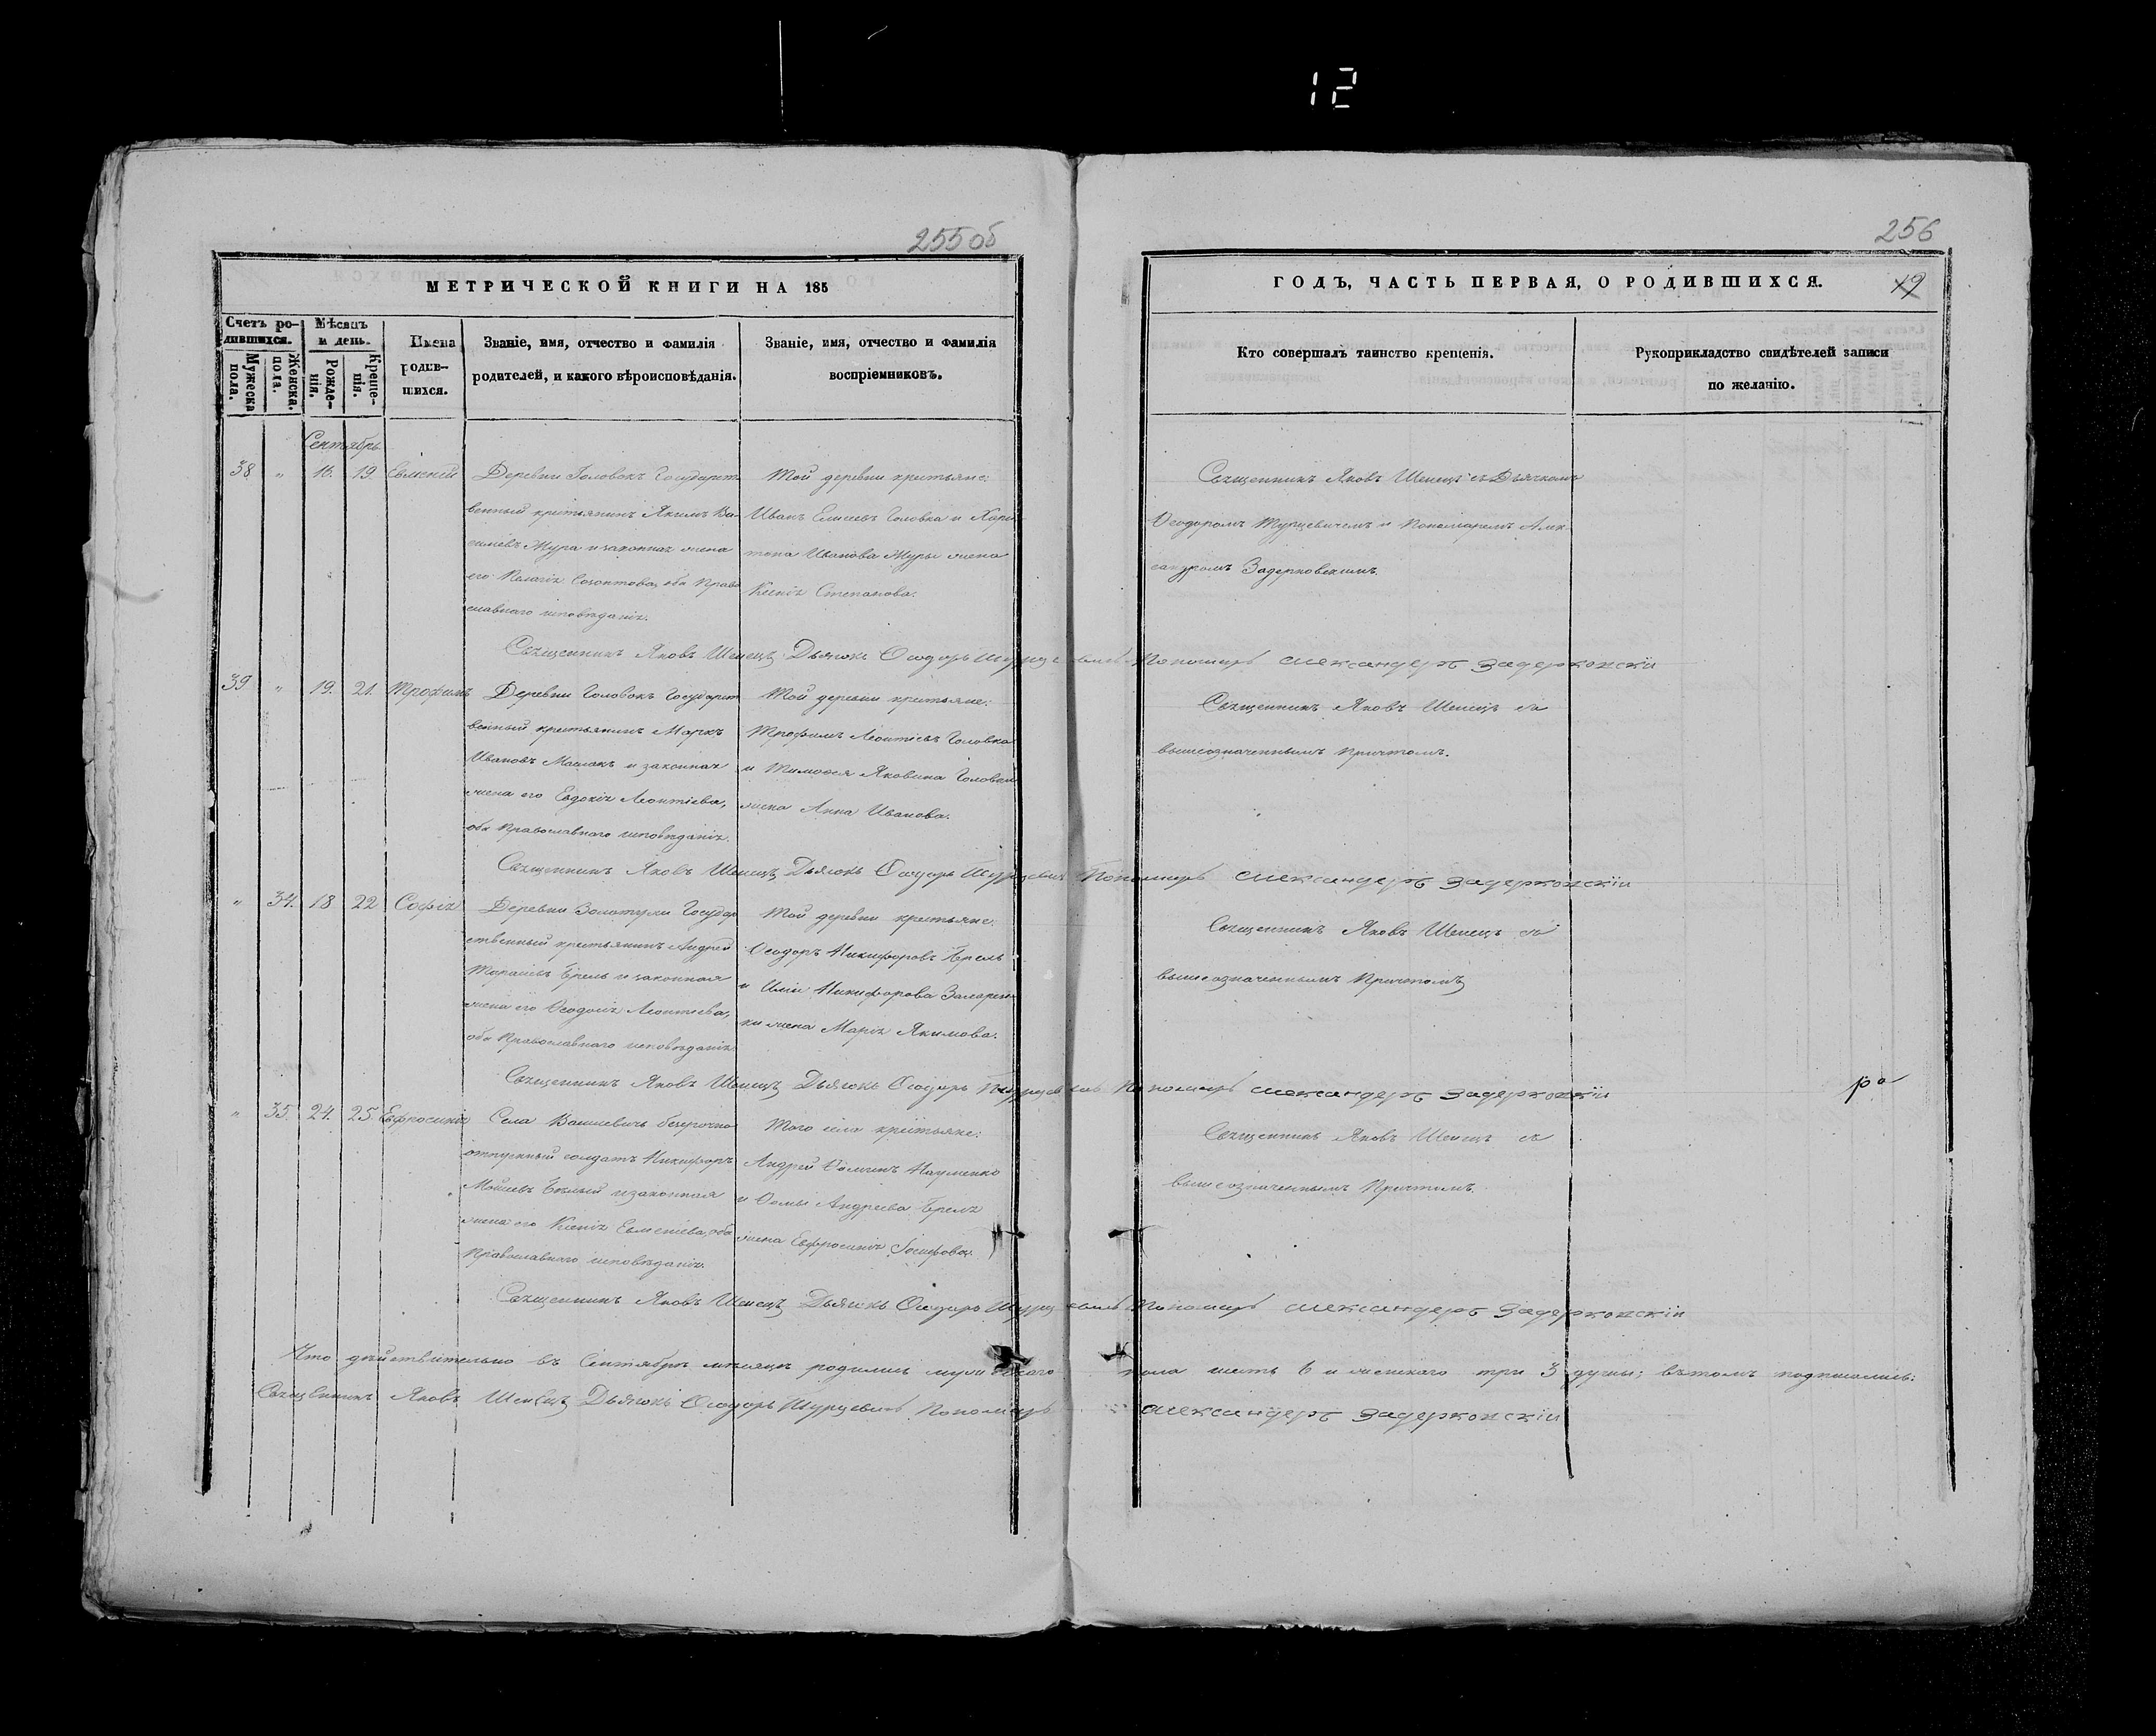 12
255об
МЕТРИЧЕСКОЙ КНИГИ НА 185
Счетъ ро-
дившихся.
Мужеска
пола.
Женска.
пола.
Мѣсяцъ
и день.
Рожде-
нія.
Креще-
нія.
Имена
родив-
шихся.
Званіе, имя, отчество и фамилія
родителей, и какого вѣроисповѣданія.
Званіе, имя, отчество и фамилія
воспріемниковъ.
Сентябрь
38 " 16. 19. Евменій
Деревни Головокъ Государст
венный крестьянинъ Якимъ Ва-
силіевъ Жура и законная жена
его Пелагія Созонтова, оба Право
славнаго исповѣданія.
Той деревни крестьяне:
Иванъ Елисеевъ Головка и Хари
тона Иванова Журы жена
Ксенія Степанова.
Священникъ Яковъ Шенецъ Дьячокъ Ѳеодоръ Турцевичъ Пономарь Александеръ Задерковскій
39 " 19. 21. Трофимъ
Деревни Головокъ Государст
венный крестьянинъ Маркъ
Ивановъ и законная
жена его Евдокія Леонтіева,
оба Православнаго исповѣданія.
Той деревни крестьяне:
Трофимъ Леонтіевъ Головка
и Тимоѳея Яковина Головки
жена Анна Иванова.
Священникъ Яковъ Шенецъ Дьячокъ Ѳеодоръ Турцевичъ Пономарь Александеръ Задерковскій
" 34. 18 22 Софія
Деревни Государ
ственный крестьянинъ Андрей
Тарасіевъ Брель и законная
жена его Ѳеодосія Леонтіева,
оба Православнаго исповѣданія.
Той деревни крестьяне:
Ѳеодоръ Никифоровъ Брель
и Никифорова
ки жена Марія Якимова.
Священникъ Яковъ Шенецъ Дьячокъ Ѳеодоръ Турцевичъ Пономарь Александеръ Задерковскій
" 35. 24. 25 Евфросинія
Села Василевичъ безсрочно
отпускный солдатъ Никифоръ
Моисеевъ Бѣлый и законная
жена его Ксенія Евменіева, оба
Православнаго исповѣданія.
Того села крестьяне:
Андрей Ѳоминъ Науменко
и Ѳомы Андреева Бреля
жена Евфросинія Іосифова.
Священникъ Яковъ Шенецъ Дьячокъ Ѳеодоръ Турцевичъ Пономарь Александеръ Задерковскій
Что дѣйствительно въ Сентябрѣ мѣсяцѣ родились мужескаго пола шесть 6 и женскаго три 3 души; въ томъ подписались:
Священникъ Яковъ Шенецъ Дьячокъ Ѳеодоръ Турцевичъ Пономарь Александеръ Задерковскій
256
ГОДЪ, ЧАСТЬ ПЕРВАЯ, О РОДИВШИХСЯ.
Кто совершалъ таинство крещенія.
Рукоприкладство свидѣтелей записи
по желанію.
Священникъ Яковъ Шенецъ съ Дьячкомъ
Ѳеодоромъ Турцевичемъ и Пономаремъ Алек
сандромъ Задерковскимъ.
Священникъ Яковъ Шенецъ съ
вышеозначеннымъ Причтомъ.
Священникъ Яковъ Шенецъ съ
вышеозначеннымъ Причтомъ
Священникъ Яковъ Шенецъ съ
вышеозначеннымъ Причтомъ.